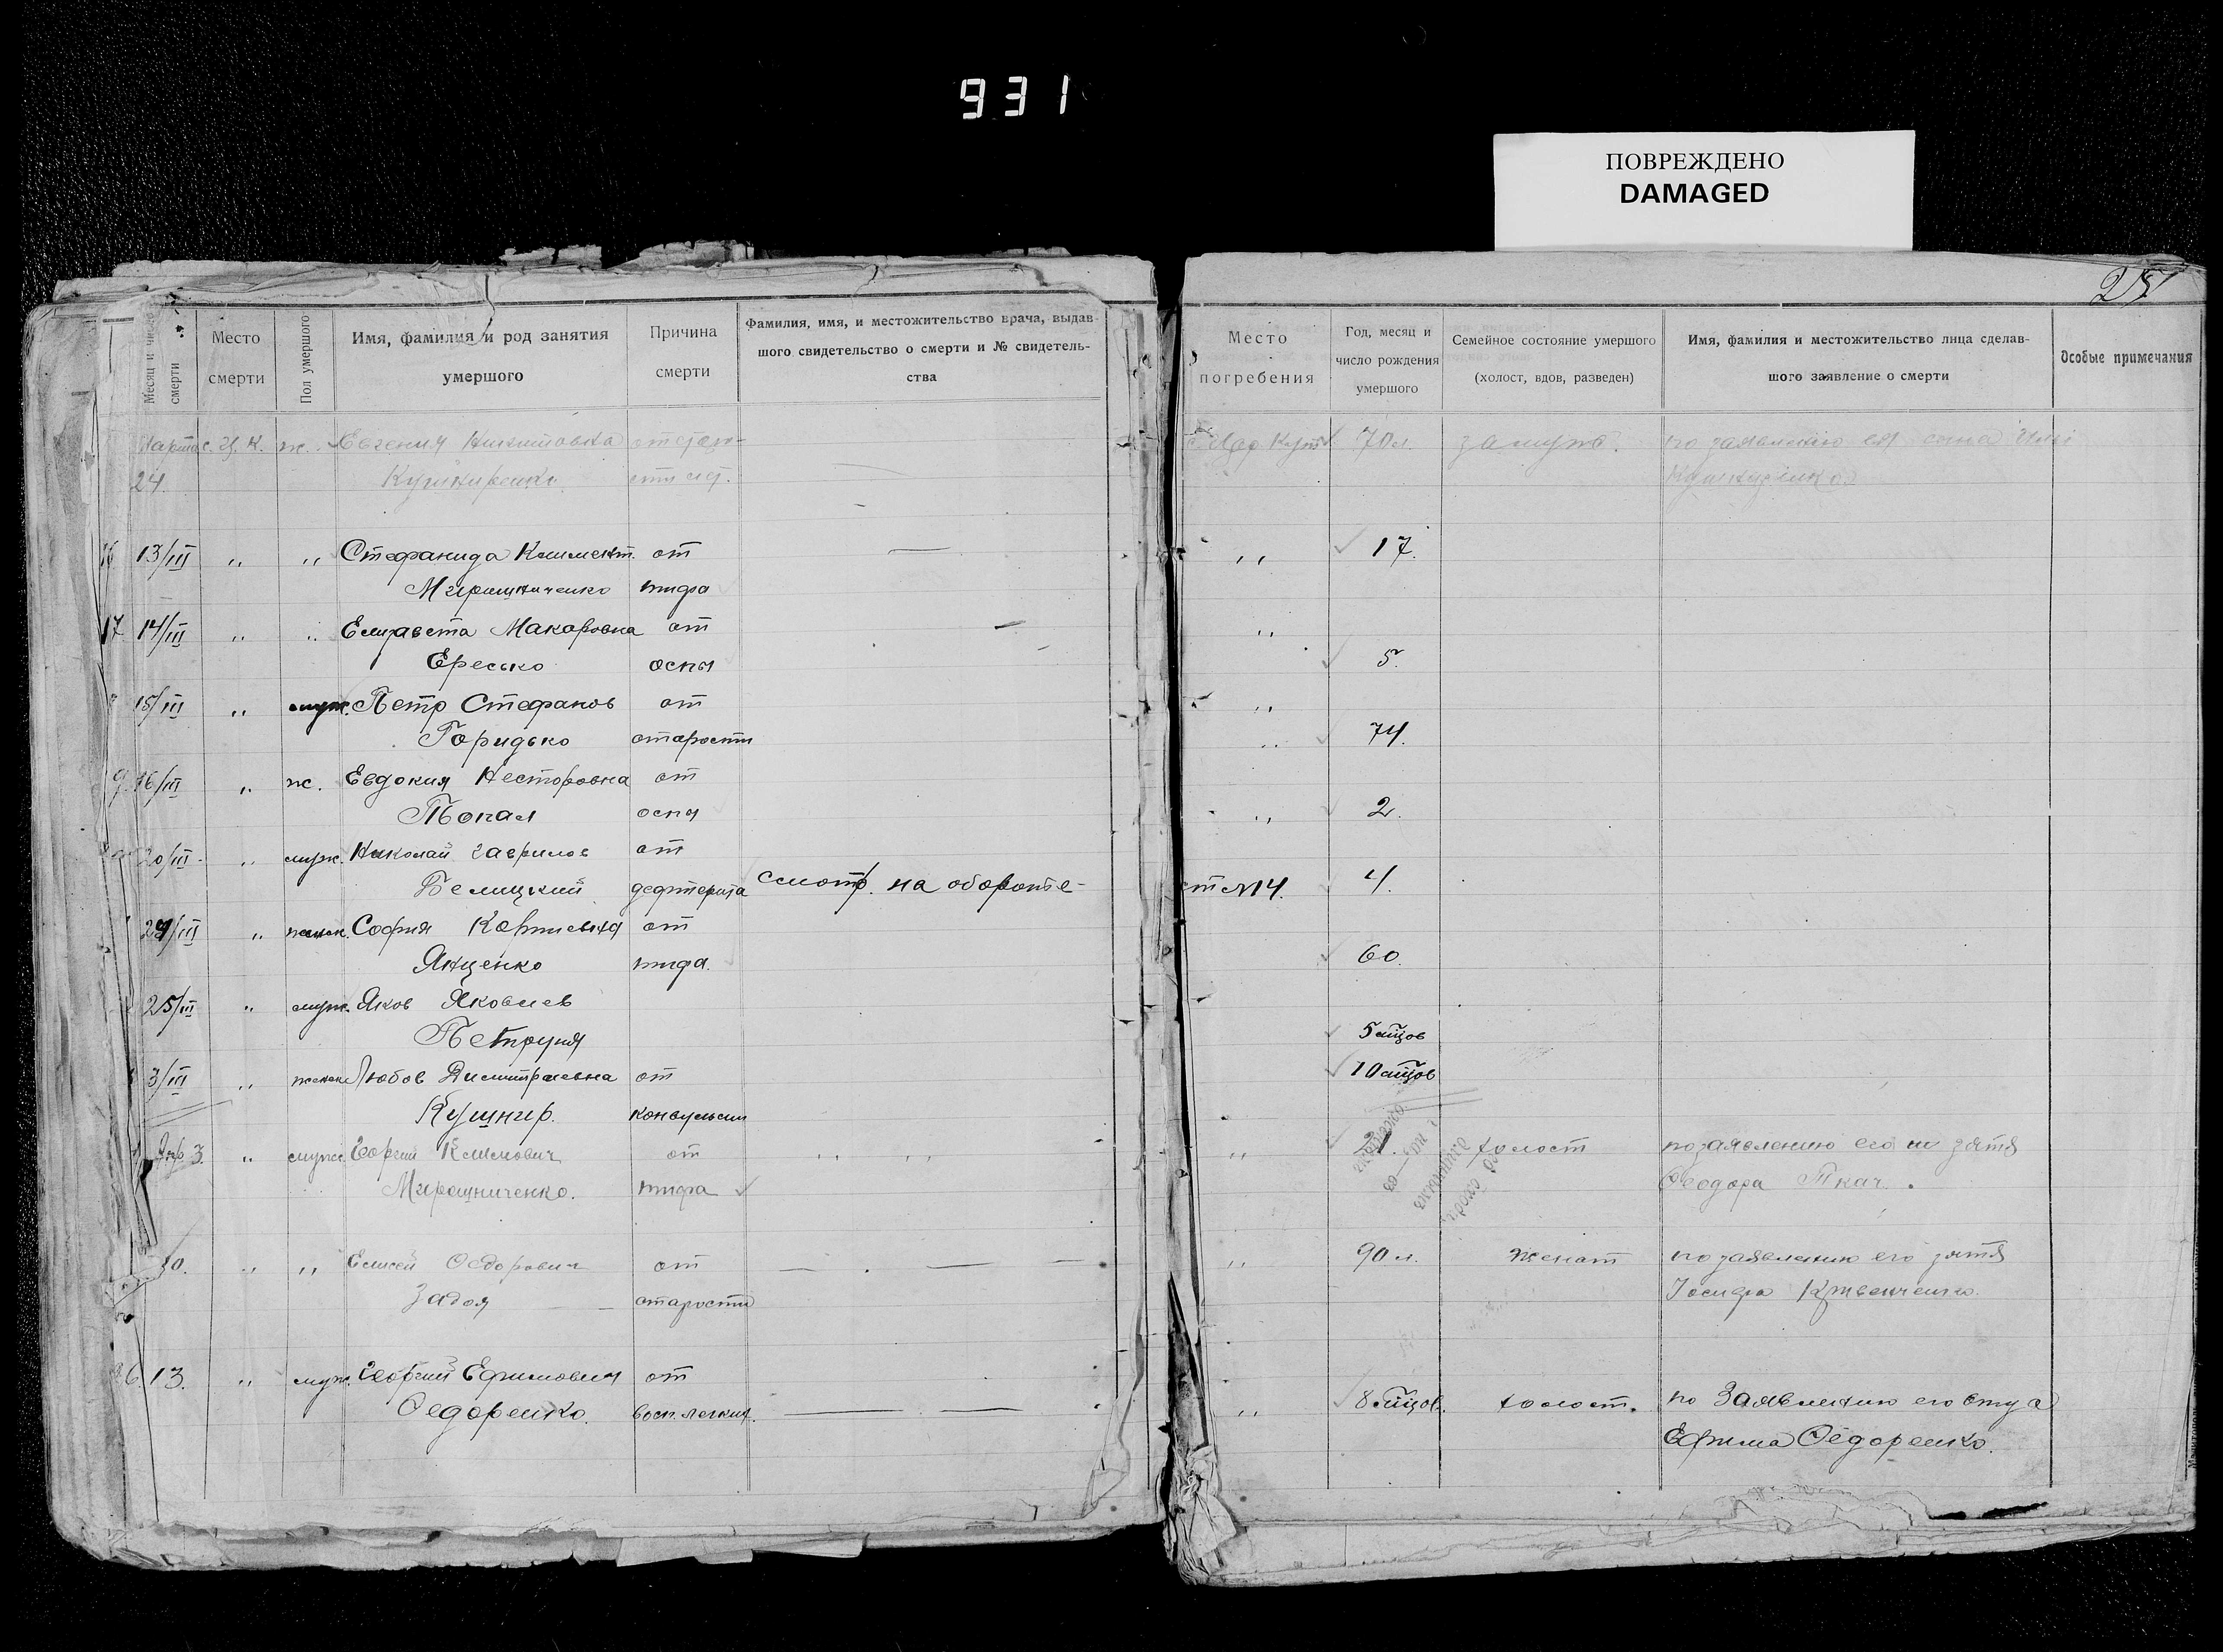 931
ПОВРЕЖДЕНО
DAMAGED
Месяц и число смерти
Место смерти
Пол умершого
Имя, фамилия и род занятия умершого
Причина смерти
Фамилия, имя, и местожительство врача, выдавшого свидетельство о смерти и № свидетельства
Место погребения
Год, месяц и число рождения умершого
Семейное состояние умершого (холост, вдов, разведен)
Имя, фамилия и местожительство лица сделавшого заявление о смерти
Особые примечания
Марта с. Ц. К. ж. Евгения Никитовна 70 л. замуж. по заявлению ея сына
24.
13/III " " Стефанида Климент. от — " 17.
Мирошниченко тифа
17 14/III " " Елизавета Макаровна от — "
Ересько оспы 5.
15/III " муж. Петр Стефанов от "
Горидько старости " 74.
16/III " ж. Евдокия Несторовна от
Топал оспы " 2.
20/III " муж. Николай Гаврилов от
Белицкий дефтерита смотр. на обороте ст №14. 4.
" женск. София от
Яценко тифа. 60.
25/III " муж. Яков Яковлев
Петруня 5 м̃цов
3/III " женск Любов Димитриевна от 10 м̃цов
Кушнир. конвульсии
Апр 3. " муж. Георгий Климович от " " " 21. холост по заявлению его зятя
Мирошниченко. тифа Феодора Ткач.
10. " " Елисей Федорович от — — — " 90 л. женат по заявлению его зятя
Задоя старости Іосифа
26. 13. " муж. Георгий Ефимович от
Федоренко. восп. легких. — — " 8 м̃цов. холост. по Заявлению его отца
Ефима Федоренко.